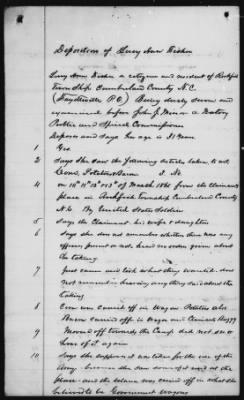 Deposition of Lucy Ann
Lucy Ann a citizen and resident of Rockfish
Township Cumberland County N.C.
(Fayetteville P.O.) Being duly sworn and
examined before John J. a Notary
Public and Special Commissioner
Deposes and says her age is 31 years
1 Yes
2 Says she saw the following articles taken, to wit
Corn, Potatoes Bacon
4 on 10th 11th 12th & 13th of March 1865 from the claimants
place in Rockfish Township Cumberland County
N.C. By United States Soldiers
5 Says the Claimant & his wife & daughter
6 Says she does not remember whether there was any
officers present or not, heard no orders given about
the taking
7 Just came and took what they wanted. does
not remember hearing any thing said about the
taking
8 Corn was carried off in Wagon Potatoes also
Bacon carried off in Wagon and Buggy
9 Moved off towards the Camp did not see or
hear of it again
10 Says she supposes it was taken for the use of the
Army because she saw some of it used at the
place and the balance was carried off in what she
believed to be Government wagons